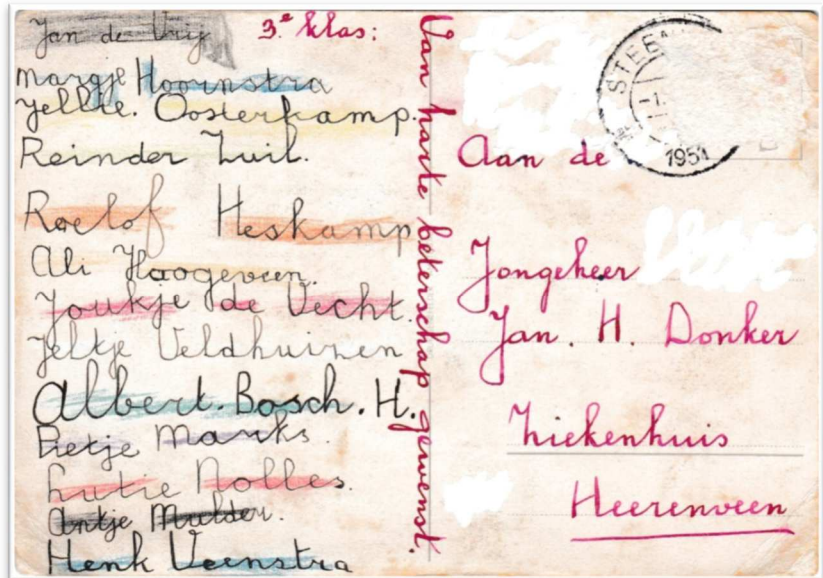 Jan de Vrij
3.e klas:
Margje Hoornstra
Jellie. Oosterkamp.
Reinder Zuil.
Roelof Heskamp
Ali Hoogeveen.
Joukje de Vecht.
Jeltje Veldhuizen
Albert. Bosch. H.
Pietje Marks.
Lutie Nolles.
Antje Mulder.
Henk Veenstra
Van harte beterschap gewenst.
1951
Aan de
Jongeheer
Jan. H. Donker
Ziekenhuis
Heerenveen